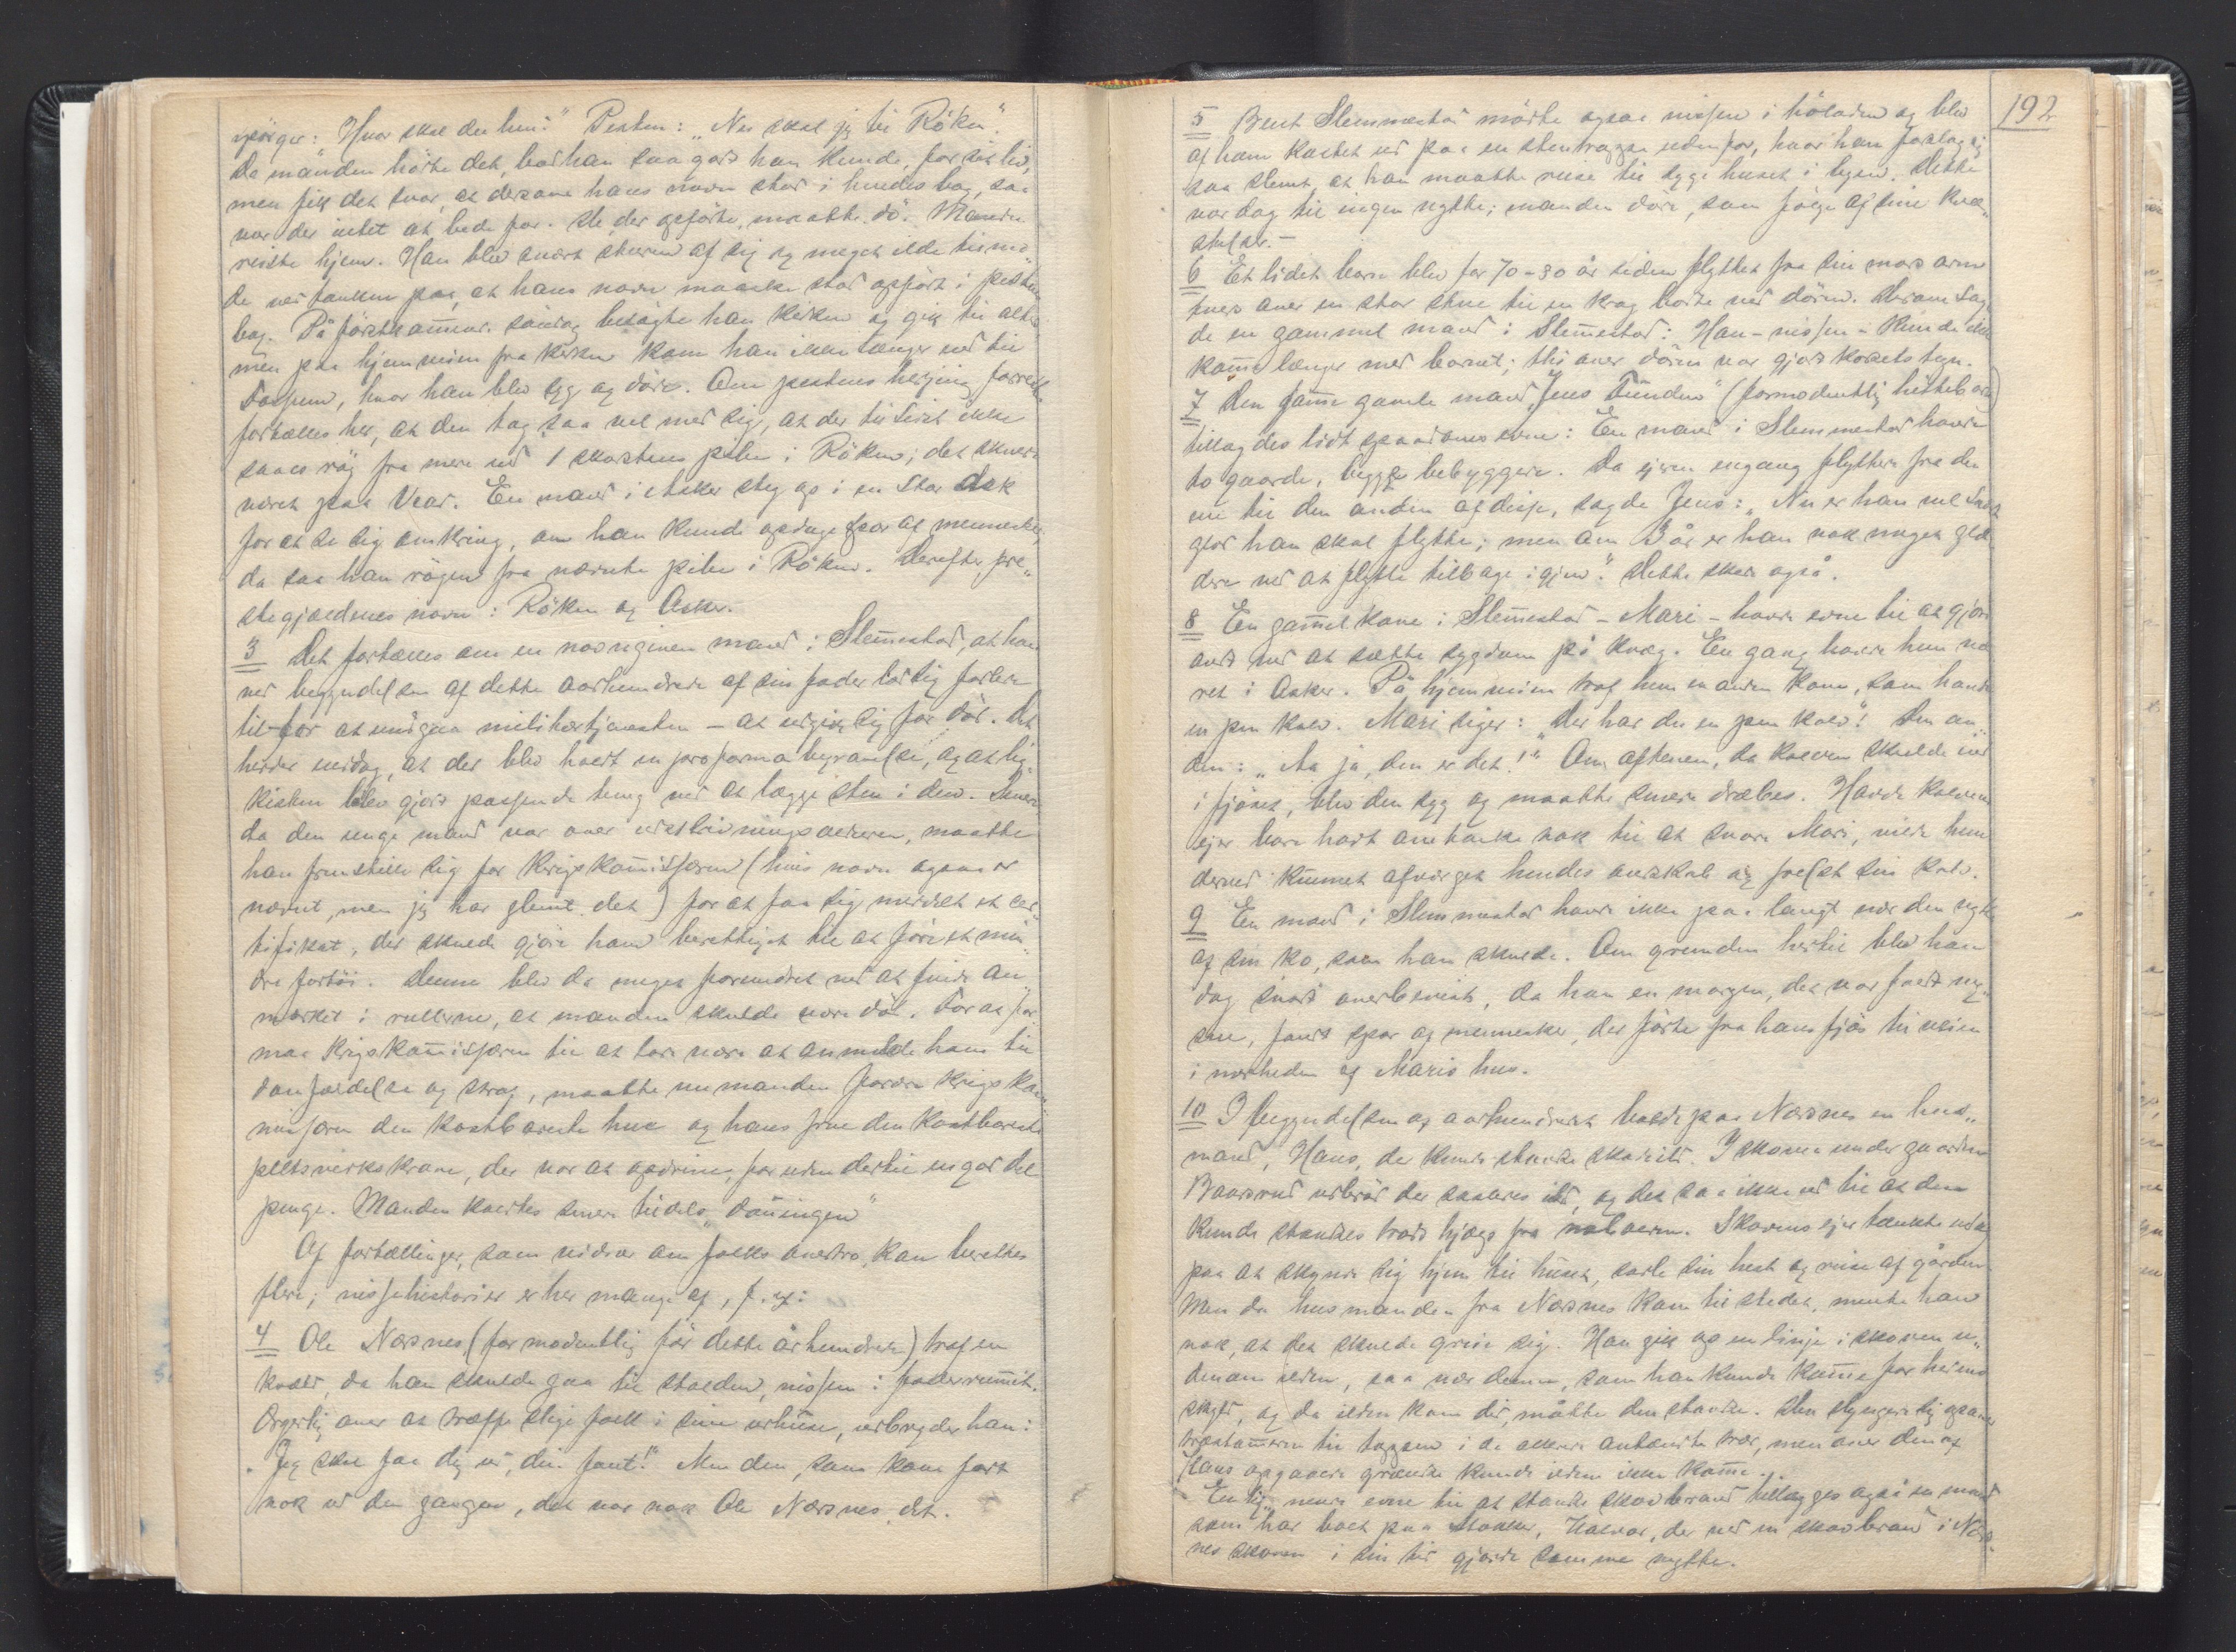 spørger: "Hvor skal du hen?" Pesten: "Nu skal jeg til Röken".
Da manden hörte det, bad han saa godt han kunde, for sit liv,
men fik det svar, at dersom hans navn stod i hendes bog, saa
var der intet at bede for. De, der opförtes, maatte dö. Manden
reiste hjem. Han blev snart skræmt af sig og meget ilde tilmo-
de ved tanken paa, at hans navn maaske stod opført i pestens
bog. På förstkommende söndag besögte han kirken og gik til alters
men paa hjemveien fra kirken kom han ikke længer end til
, hvor han blev syg og döde. Om pestens herjing forresten
fortælles her, at den tog saa vel med sig, at der tilsidst ikke
saaes røg fra mere end 1 skorstens pibe i Röken; det skulde
været paa Vear. En mand i Asker steg op i en stor Ask
for at se sig omkring, om han kunde opdage spor af mennesker,
da saa han rögen fra nævnte pibe i Röken. Derefter præ-
stegjældenes navn: Röken og Asker.
3 Det fortælles om en navngiven mand i Slemmestad, at han
ved begyndelsen af dette aarhundrede af sin fader lod sig forlede
til - for at undgaa militærtjenesten - at udgive sig for död. Det
heder endog, at der blev holdt en proforma begravelse, og at lig-
kisten blev gjort passende tung ved at lægge sten i den. Senere
da den unge mand var over udskrivningsalderen, maatte
han fremstille sig for krigskommissæren (hvis navn ogsaa er
nævnt, men jeg har glemt det) for at faa sig meddelt et cer-
tifikat, der skulde gjøre ham berettiget til at føre et min-
dre fartöi. Denne blev da meget forundret ved at finde an-
mærket i rullerne, at manden skulde være död. For at for-
maa krigskommissæren til at lade være at anmelde ham til
domfældelse og straf, maatte nu manden forære krigskom-
missæren den kostbareste hue og hans frue den kostbareste
peltsverkskrave, der var at opdrive, foruden dertil en god del
penge. Manden kaldtes senere tildels "dauingen"
Af fortællinger, som vidner om folks overtro, kan berettes
flere; nissehistorier er her mange af, f. ex:
4 Ole Næsnes (formodentlig för dette århundrede) traf en
kveld, da han skulde gaa til stalden, nissen i foderrummet.
Ærgerlig over at træffe slige folk i sine udhuse, udbryder han:
"Jeg skal faa dig ud, din fant!" Men den, som kom fort
nok ud den gangen, det var nok Ole Næsnes, det.
192
5 Bent Slemmestad mödte ogsaa nissen i höladen og blev
af ham kastet ud paa en stentrappe udenfor, hvor han forslog sig
saa slemt, at han maatte reise til sygehuset i byen. Dette
var dog til ingen nytte; manden döde, som fölge af sine kvæ-
stelser. -
6 Et lidet barn blev for 70-80 år siden flyttet fra sin mors arm
tvers over en stor stue til en krog borte ved dören. Herom sag-
de en gammel mand i Slemmestad: Han - nissen - kunde ikke
komme længer med barnet; thi over dören var gjort korsets tegn.
7 Den samme gamle mand "Jens Funden" (formodentlig hittebarn)
tillagdes lidt spaadomsevne: En mand i Slemmestad havde
to gaarde, begge bebyggede. Da ejeren engang flyttede fra den
ene til den anden af disse, sagde Jens: "Nu er han vel saa
glad han skal flytte; men om 3 år er han nok meget gla-
dere ved at flytte tilbage igjen." Dette skede også.
8 En gammel kone i Slemmestad - Mari - havde evne til at gjöre
ondt ved at sætte sygdom på kvæg. En gang havde hun væ-
ret i Asker. På hjemveien traf hun en anden kone, som havde
en pen kalv. Mari siger: "Der har du en pen kalv!" Den an-
den: "Aa ja, den er det!" Om aftenen, da kalven skulde ind
i fjöset, blev den syg og maatte senere dræbes. Havde kalvens
ejer bare havt omtanke nok til at svare Mari, vilde hun
derved kunnet afværget hendes ondskab og frelst sin kalv.
9 En mand i Slemmestad havde ikke paa langt nær den nytte
af sin ko, som han skulde. Om grunden hertil blev han
dog snart overbevist, da han en morgen, det var faldt ny-
sne, fandt spor af mennesker, der förte fra hans fjös til veien
i nærheden af Maris hus.
10 I begyndelsen af aarhundredet boede paa Næsnes en hus-
mand, Hans, der kunde standse skovild. I skoven under gaarden
Baarsrud udbröd der saadan ild, og det saa ikke ud til at den
kunde standses trods hjælp fra naboerne. Skovens ejer tænkte nok
paa at skynde sig hjem til huset, sadle sin hest og reise af gården.
Men da husmanden fra Næsnes kom til stedet, mente han
nok, at det skulde greie sig. Han gik op en linje i skoven u-
denom ilden, saa nær denne, som han kunde komme for hedens
skyld, og da ilden kom did, måtte den standse. Den slyngede sig ogsaa om
træstammerne til toppen i de allerede antændte trær, men over den af
Hans opgaaede grændse kunde ilden ikke komme.
En lignende evne til at standse skovbrand tillægges også en mand
som har boet paa Stokker, Halvor, der ved en skovbrand i Næs-
nesskoven i sin tid gjorde samme nytte.